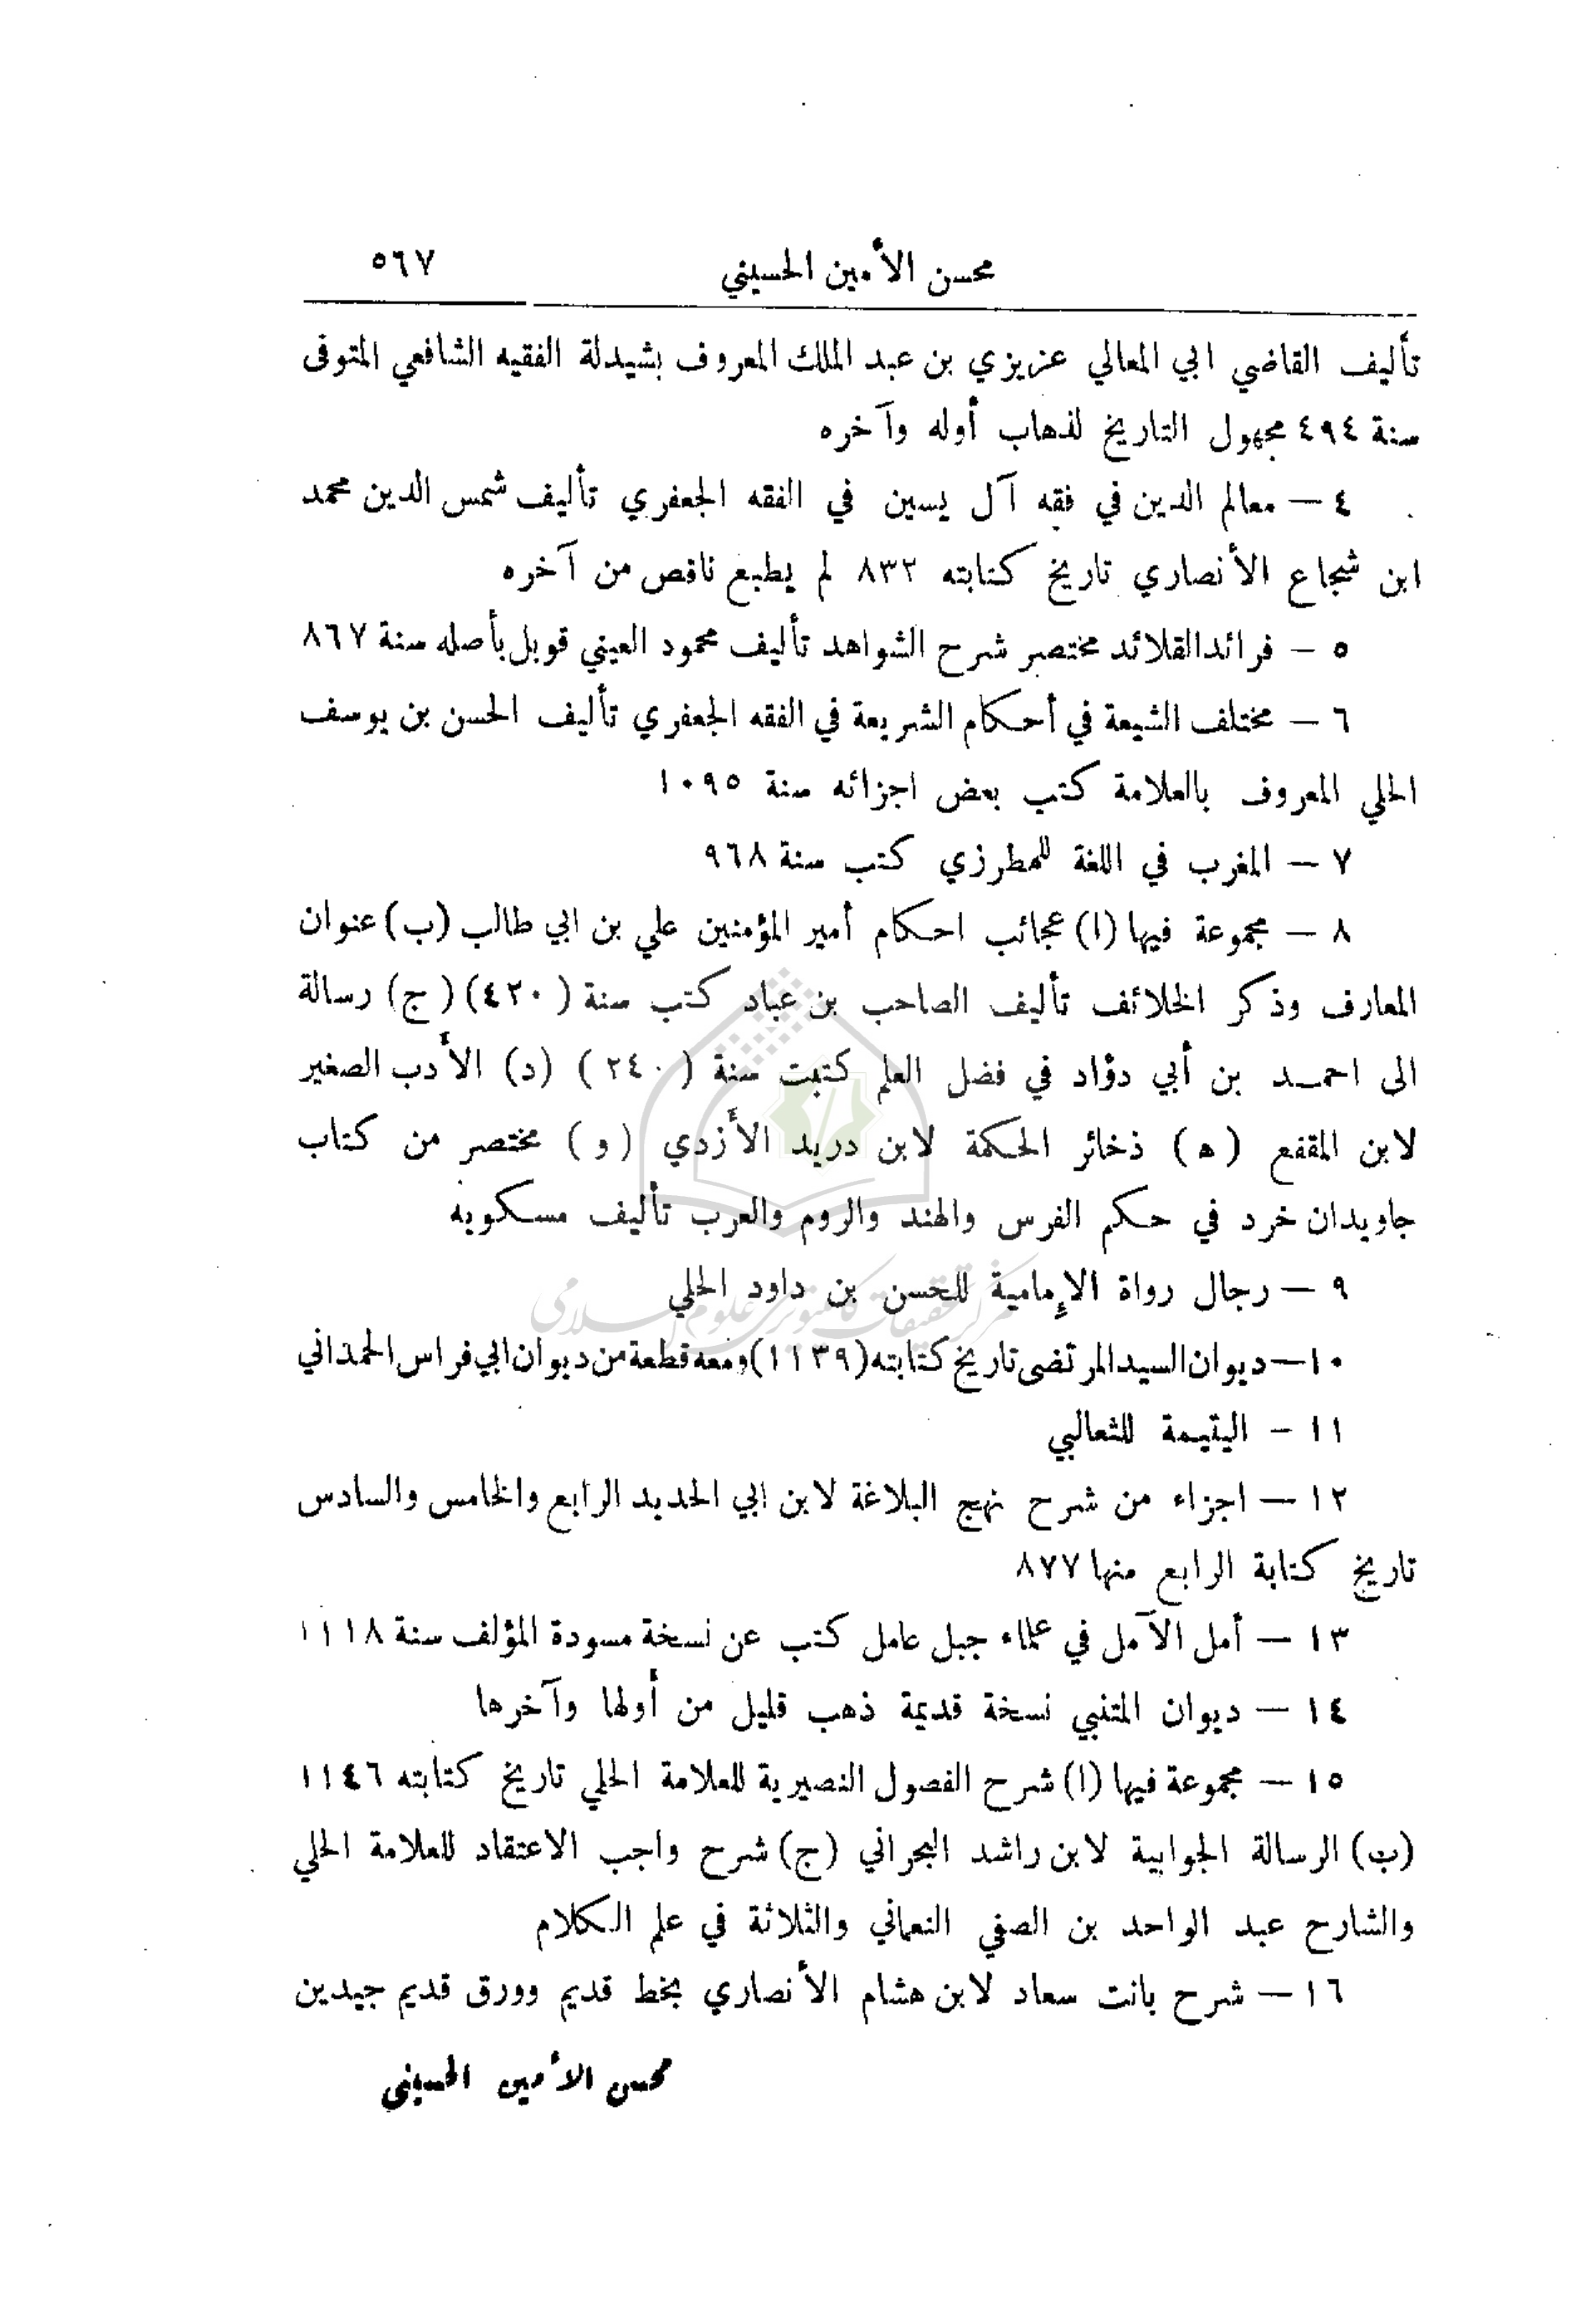 محسن الأمين الحسيني ٥٦٧
تأليف القاضي ابي المعالي عزيزي بن عبد الملك المعروف بشيدلة الفقيه الشافعي المتوفى
سنة ٤٩٤ مجهول التاريخ لذهاب أوله وآخره
٤ — معالم الدين في فقه آل يسين في الفقه الجعفري تأليف شمس الدين محمد
ابن شجاع الأنصاري تاريخ كتابته ٨٣٢ لم يطبع ناقص من آخره
٥ — فرائد القلائد مختصر شرح الشواهد تأليف محمود العيني قوبل بأصله سنة ٨٦٧
٦ — مختلف الشيعة في أحكام الشريعة في الفقه الجعفري تأليف الحسن بن يوسف
الحلي المعروف بالعلامة كتب بعض اجزائه سنة ١٠٩٥
٧ — المغرب في اللغة للمطرزي كتب سنة ٩٦٨
٨ — مجموعة فيها (ا) عجائب احكام أمير المؤمنين علي بن ابي طالب (ب) عنوان
المعارف وذكر الخلائف تأليف الصاحب بن عباد كتب سنة (٤٢٠) (ج) رسالة
الى احمد بن أبي دؤاد في فضل العلم كتبت سنة (٢٤٠) (د) الأدب الصغير
لابن المقفع (ه) ذخائر الحكمة لابن دريد الأزدي (و) مختصر من كتاب
جاويدان خرد في حكم الفرس والهند والروم والعرب تأليف مسكويه
٩ — رجال رواة الإمامية للحسن بن داود الحلي
١٠ — ديوان السيد المرتضى تاريخ كتابته (١١٣٩) ومعه قطعة من ديوان ابي فراس الحمداني
١١ — اليتيمة للثعالبي
١٢ — اجزاء من شرح نهج البلاغة لابن ابي الحديد الرابع والخامس والسادس
تاريخ كتابة الرابع منها ٨٧٧
١٣ — أمل الآمل في علماء جبل عامل كتب عن نسخة مسودة المؤلف سنة ١١١٨
١٤ — ديوان المتنبي نسخة قديمة ذهب قليل من أولها وآخرها
١٥ — مجموعة فيها (ا) شرح الفصول النصيرية للعلامة الحلي تاريخ كتابته ١١٤٦
(ب) الرسالة الجوابية لابن راشد البحراني (ج) شرح واجب الاعتقاد للعلامة الحلي
والشارح عبد الواحد بن الصفي النعماني والثلاثة في علم الكلام
١٦ — شرح بانت سعاد لابن هشام الأنصاري بخط قديم وورق قديم جيدين
محسن الأمين الحسيني
مركز تحقيقات كامپيوترى علوم اسلامى